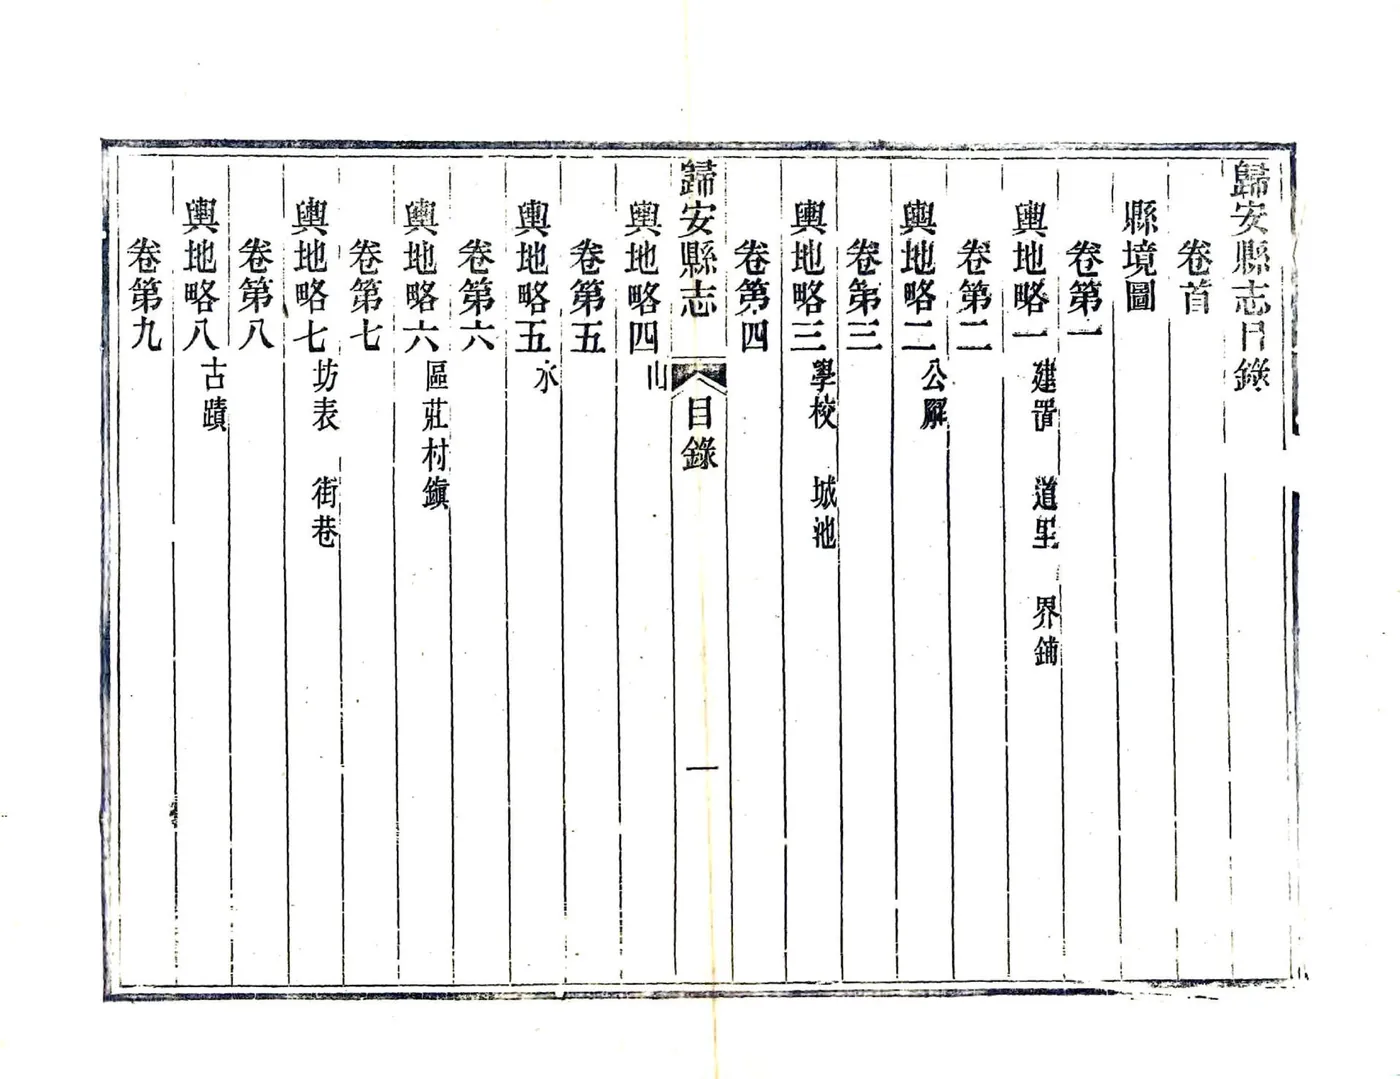 歸安縣志目錄
卷首
縣境圖
卷第一
輿地略一 建置 道里 界鋪
卷第二
輿地略二 公廨
卷第三
輿地略三 學校 城池
卷第四
歸安縣志 目錄 一
輿地略四 山
卷第五
輿地略五 水
卷第六
輿地略六 區莊村鎮
卷第七
輿地略七 坊表 街巷
卷第八
輿地略八 古蹟
卷第九